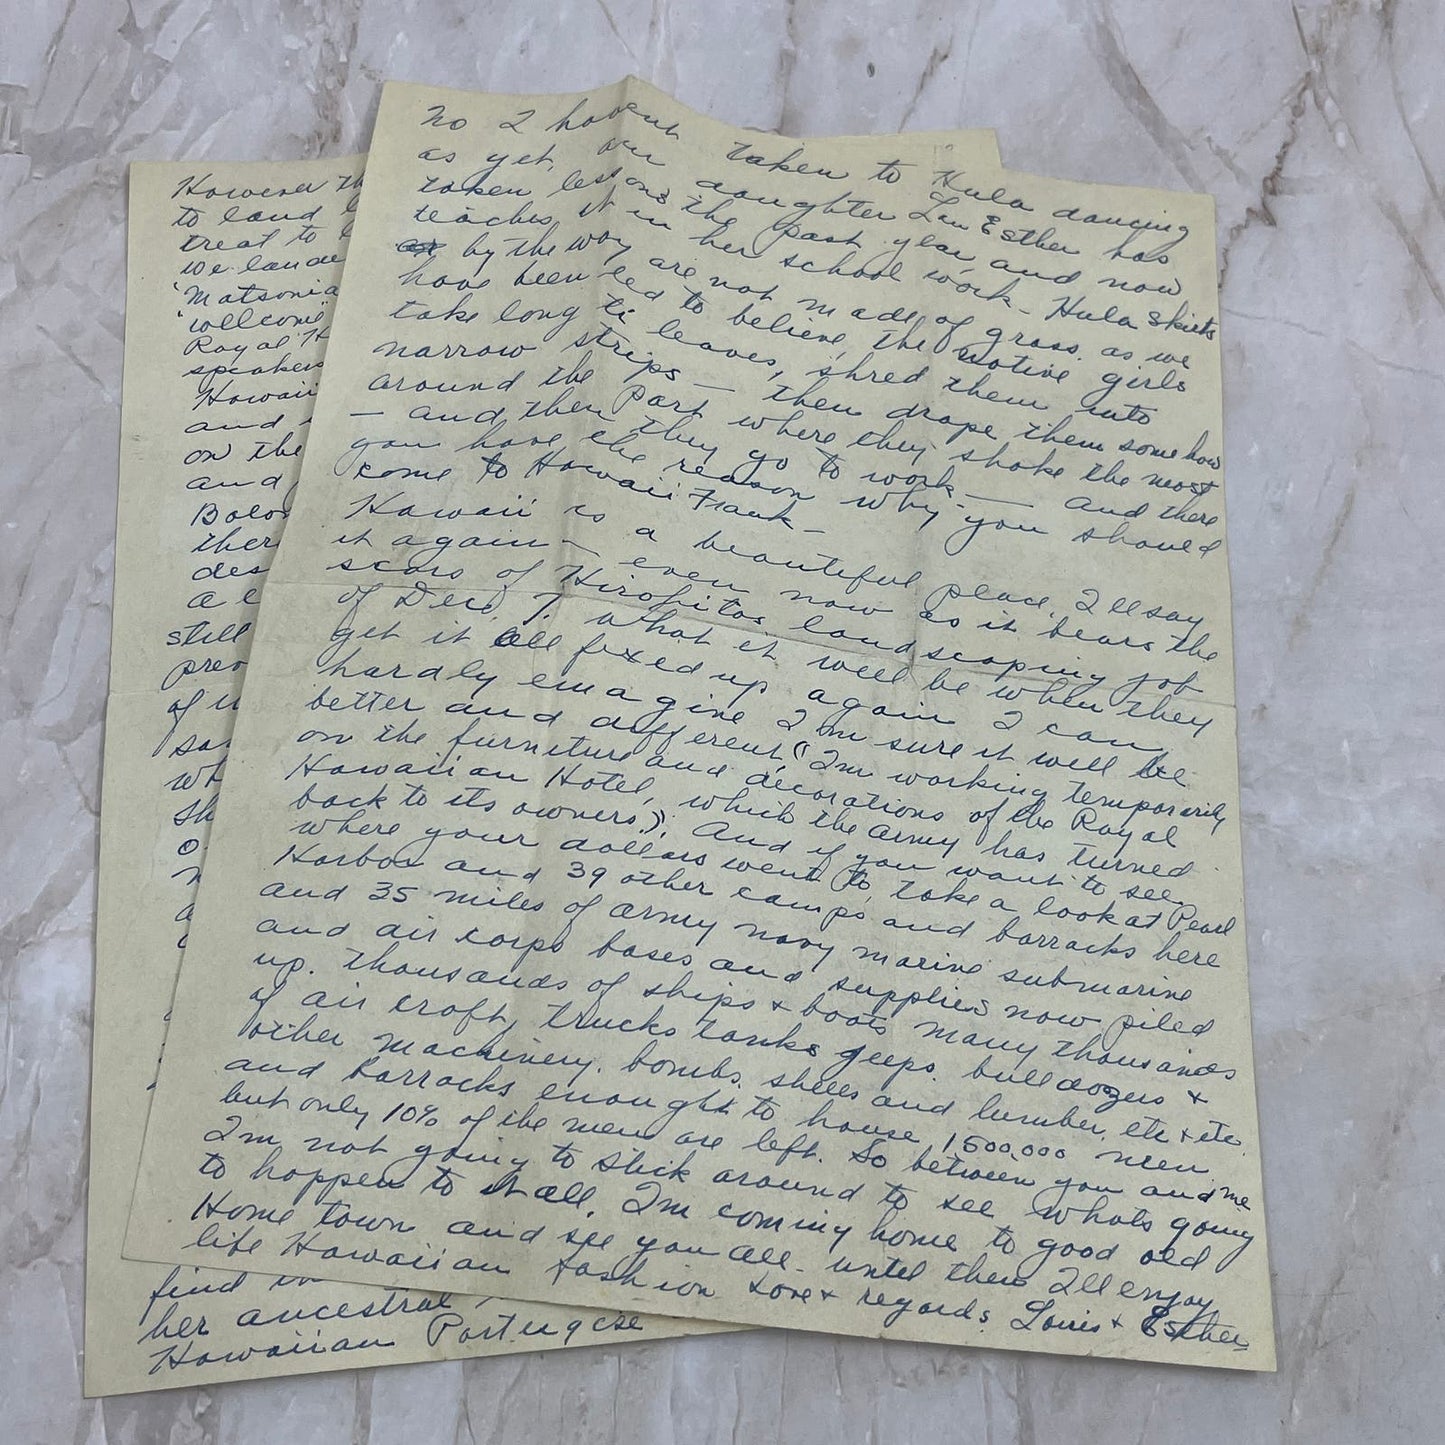 No I havent taken to Hula dancing
as yet, our daughter Lou Esther has
taken lessons the past year, and now
teaches it in her school work - Hula skirts
by the way are not made of grass. as we
have been led to believe, the native girls
take long ti leaves, shred them into
narrow strips — then drape them somehow
around the Part where they shake the most
— and then they go to work — and there
you have the reason why you should
come to Hawaii Frank -
Hawaii is a beautiful place. I'll say
it again - even now as it bears the
scars of Hirohitos landscaping job
of Dec. 7. what it will be when they
get it all fixed up again I can
hardly emagine I'm sure it will be
better and different, (I'm working temporarily
on the furniture and decorations of the Royal
Hawaiian Hotel, which the army has turned
back to its owners). And if you want to see
where your dollars went to, take a look at Pearl
Harbor and 39 other camps and barracks here
and 35 miles of army navy marine submarine
and air corps bases and supplies now piled
up. thousands of ships + boats many thousands
of air craft, trucks tanks jeeps. bulldozers +
other machinery. bombs. shells and lumber, etc + etc
and barracks enought to house 1500,000 men
but only 10% of the men are left. So between you and me
I'm not going to stick around to see whats going
to happen to it all. I'm coming home to good old
Home town and see you all - until then I'll enjoy
life Hawaiian fashion Love + regards. Louis + Esther
to land
treat to
we lande
"Matsonia
"wellcome"
Royal H
speakers
Hawaii
and
on the
and
ther
des
al
still
of
find
her ancestral
Hawaiian Portugese